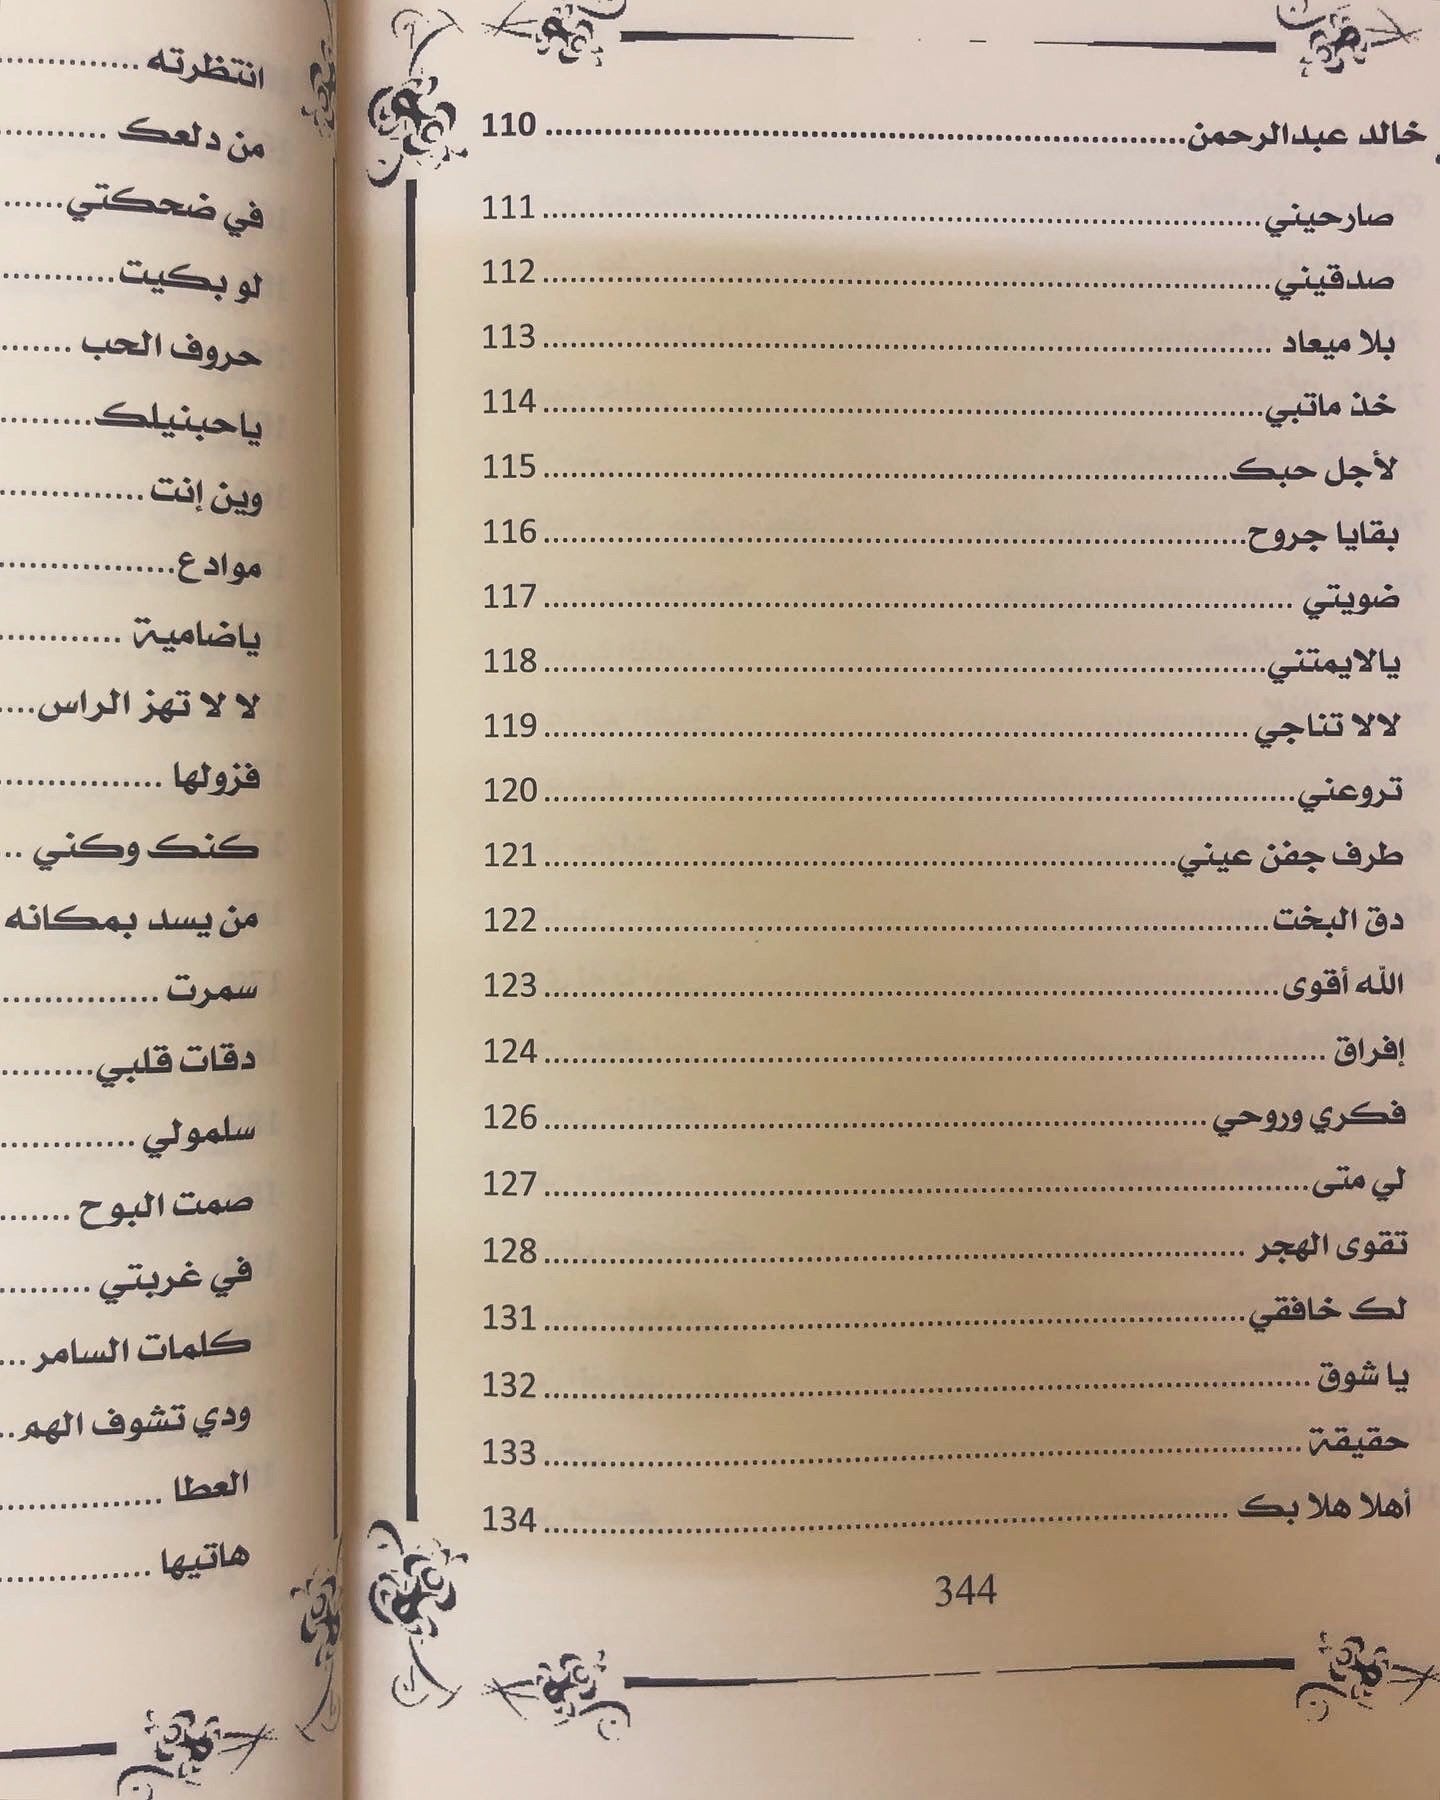 خالد عبدالرحمن........................................................ 110
صارحيني........................................................ 111
صدقيني........................................................ 112
بلا ميعاد ........................................................ 113
خذ ماتبي........................................................ 114
لأجل حبك........................................................ 115
بقايا جروح........................................................ 116
ضويتي ........................................................ 117
يالايمتني........................................................ 118
لالا تناجي ........................................................ 119
تروعني........................................................ 120
طرف جفن عيني........................................................ 121
دق البخت........................................................ 122
الله أقوى........................................................ 123
إفراق ........................................................ 124
فكري وروحي ........................................................ 126
لي متى........................................................ 127
تقوى الهجر ........................................................ 128
لك خافقي........................................................ 131
يا شوق ........................................................ 132
حقيقة ........................................................ 133
أهلا هلا بك ........................................................ 134
344
انتظرته ..............
من دلعك ..........
في ضحكتي......
لو بكيت...........
حروف الحب .......
ياحبنيلك.........
وين إنت ..............
موادع.................
ياضامية ............
لا لا تهز الراس....
فزولها ................
كنك وكني ..
من يسد بمكانه
سمرت ................
دقات قلبي.........
سلمولي .............
صمت البوح .......
في غربتي .........
كلمات السامر ...
ودي تشوف الهم..
العطا ................
هاتيها ...............